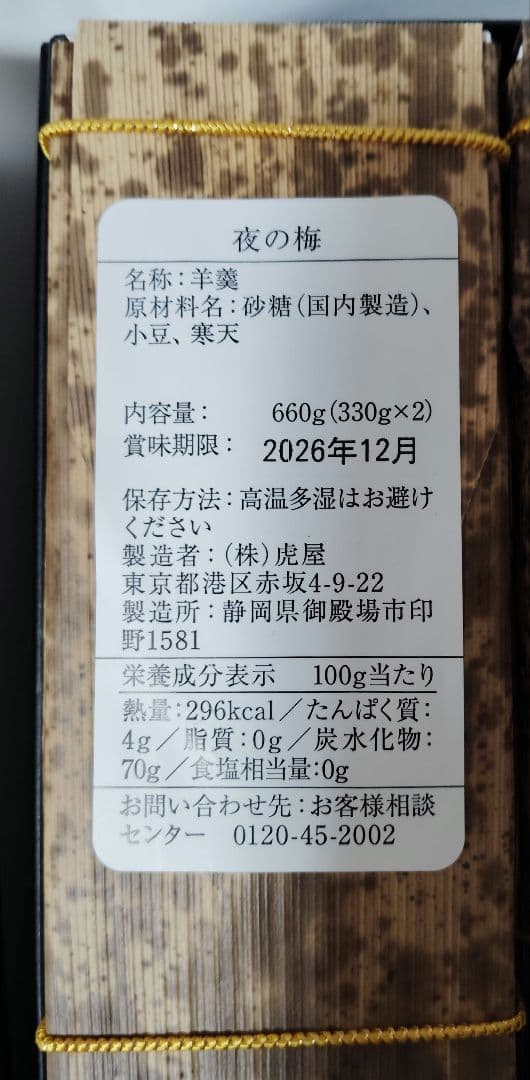 夜の梅
名称：羊羹
原材料名：砂糖（国内製造）、
小豆、寒天
内容量： 660g（330g×2）
賞味期限： 2026年12月
保存方法：高温多湿はお避け
ください
製造者：（株）虎屋
東京都港区赤坂4-9-22
製造所：静岡県御殿場市印
野1581
栄養成分表示 100g当たり
熱量：296kcal／たんぱく質：
4g／脂質：0g／炭水化物：
70g／食塩相当量：0g
お問い合わせ先：お客様相談
センター 0120-45-2002